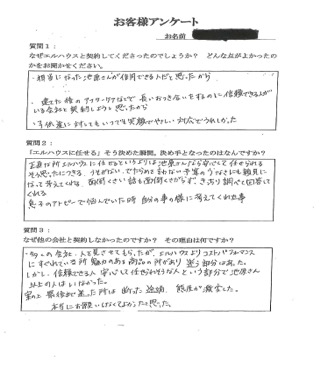 お客様アンケート
お名前
質問1:
なぜエルハウスと契約してくださったのでしょうか? どんな点がよかったの
かをお聞かせください。
・担当になった池原さんが信用できる人だと思ったから
・建てた後のアフターケアなどで長いおつき合いをするのに信頼できる人が
いる会社と契約しようと思ったから
・子供達に対してもいつでも笑顔でやさしい対応でうれしかった
質問2:
「エルハウスに任せる」そう決めた瞬間。決め手となったのはなんですか?
正直な所エルハウスに任せるというよりは池原さんなら安心して任せられる
そう思ったにつきる。
なって考えてくれる 面倒くさい話も面倒くさがらず、きっちり調べて回答して
くれる
息子のアトピーで悩んでいた時 自分の事の様に考えてくれた事
質問3:
なぜ他の会社と契約しなかったのですか? その理由は何ですか?
・多くの会社、人を見させてもらったが、エルハウスよりコストパフォーマンス
にすぐれている所 魅力のある商品の所があり 迷う部分はあった。
しかし、信頼できる人 安心して任せられそうな人という部分で池原さん
以上の人はいなかった。
実の所 最後まで迷った所は 断った 連絡 態度が激変した。
本当にお願いしなくてよかったと思った。